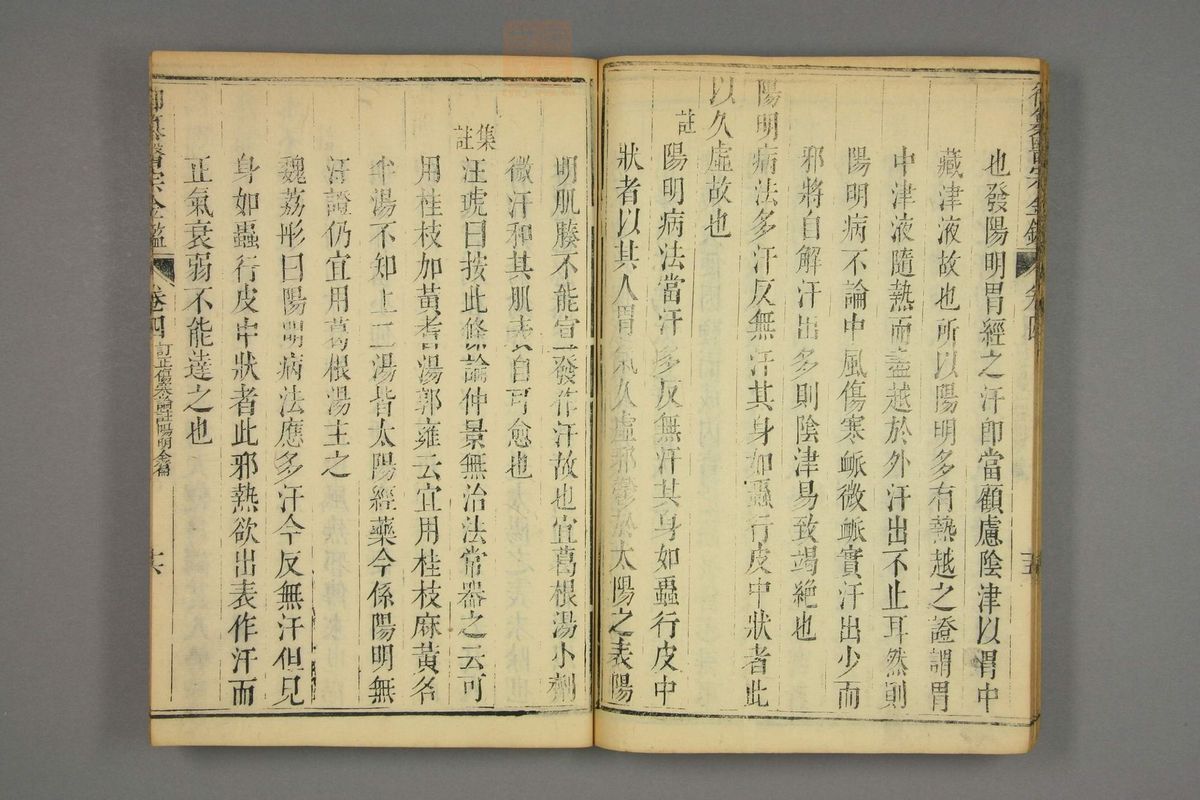 也發陽明胃經之汗即當顧慮陰津以胃中
藏津液故也所以陽明多有熱越之證謂胃
中津液隨熱而盡越於外汗出不止耳然則
陽明病不論中風傷寒脈微脈實汗出少而
邪將自解汗出多則陰津易致竭絶也
陽明病法多汗反無汗其身如蟲行皮中狀者此
以久虛故也
註
陽明病法當汗多反無汗其身如蟲行皮中
狀者以其人胃氣久虛邪鬱於太陽之表陽
明肌腠不能宣發作汗故也宜葛根湯小劑
微汗和其肌表自可愈也
集註
汪琥曰按此條論仲景無治法常器之云可
用桂枝加黃耆湯郭雍云宜用桂枝麻黃各
半湯不知上二湯皆太陽經藥今係陽明無
汗證仍宜用葛根湯主之
魏荔彤曰陽明病法應多汗今反無汗但見
身如蟲行皮中狀者此邪熱欲出表作汗而
正氣衰弱不能達之也
御纂醫宗金鑑
卷四
訂正傷寒論註陽明全篇
六